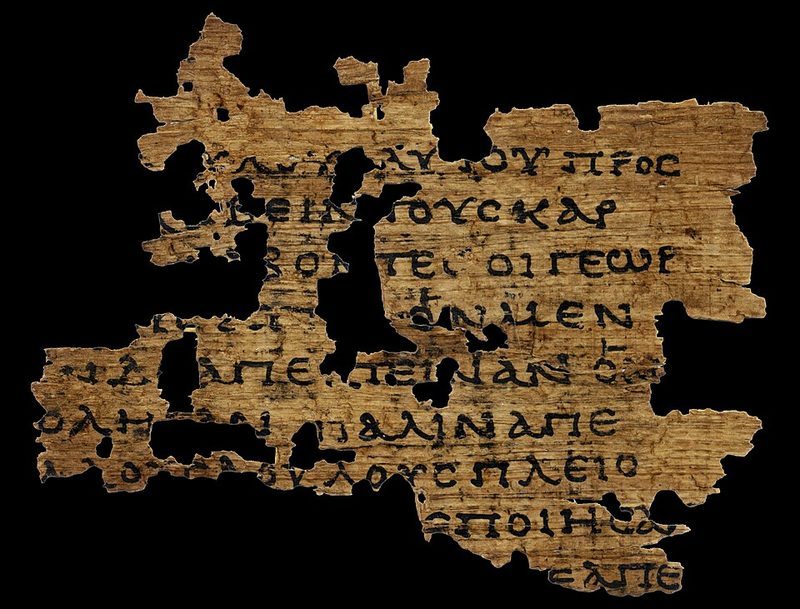 ΥΛΟΥϹΑΥΤΟΥΠΡΟϹ
ΒΕΙΝΤΟΥϹΚΑΡ
ΒΟΝΤΕϹΟΙΓΕΩΡ
ΟΝΜΕΝ
ΑΠΕΚΤΕΙΝΑΝΟ
ΟΛΗϹΑΝΠΑΛΙΝΑΠΕ
ΔΟΥΛΟΥϹΠΛΕΙΟ
ΕΠΟΙΗϹΑ
ΕΑΠΕ